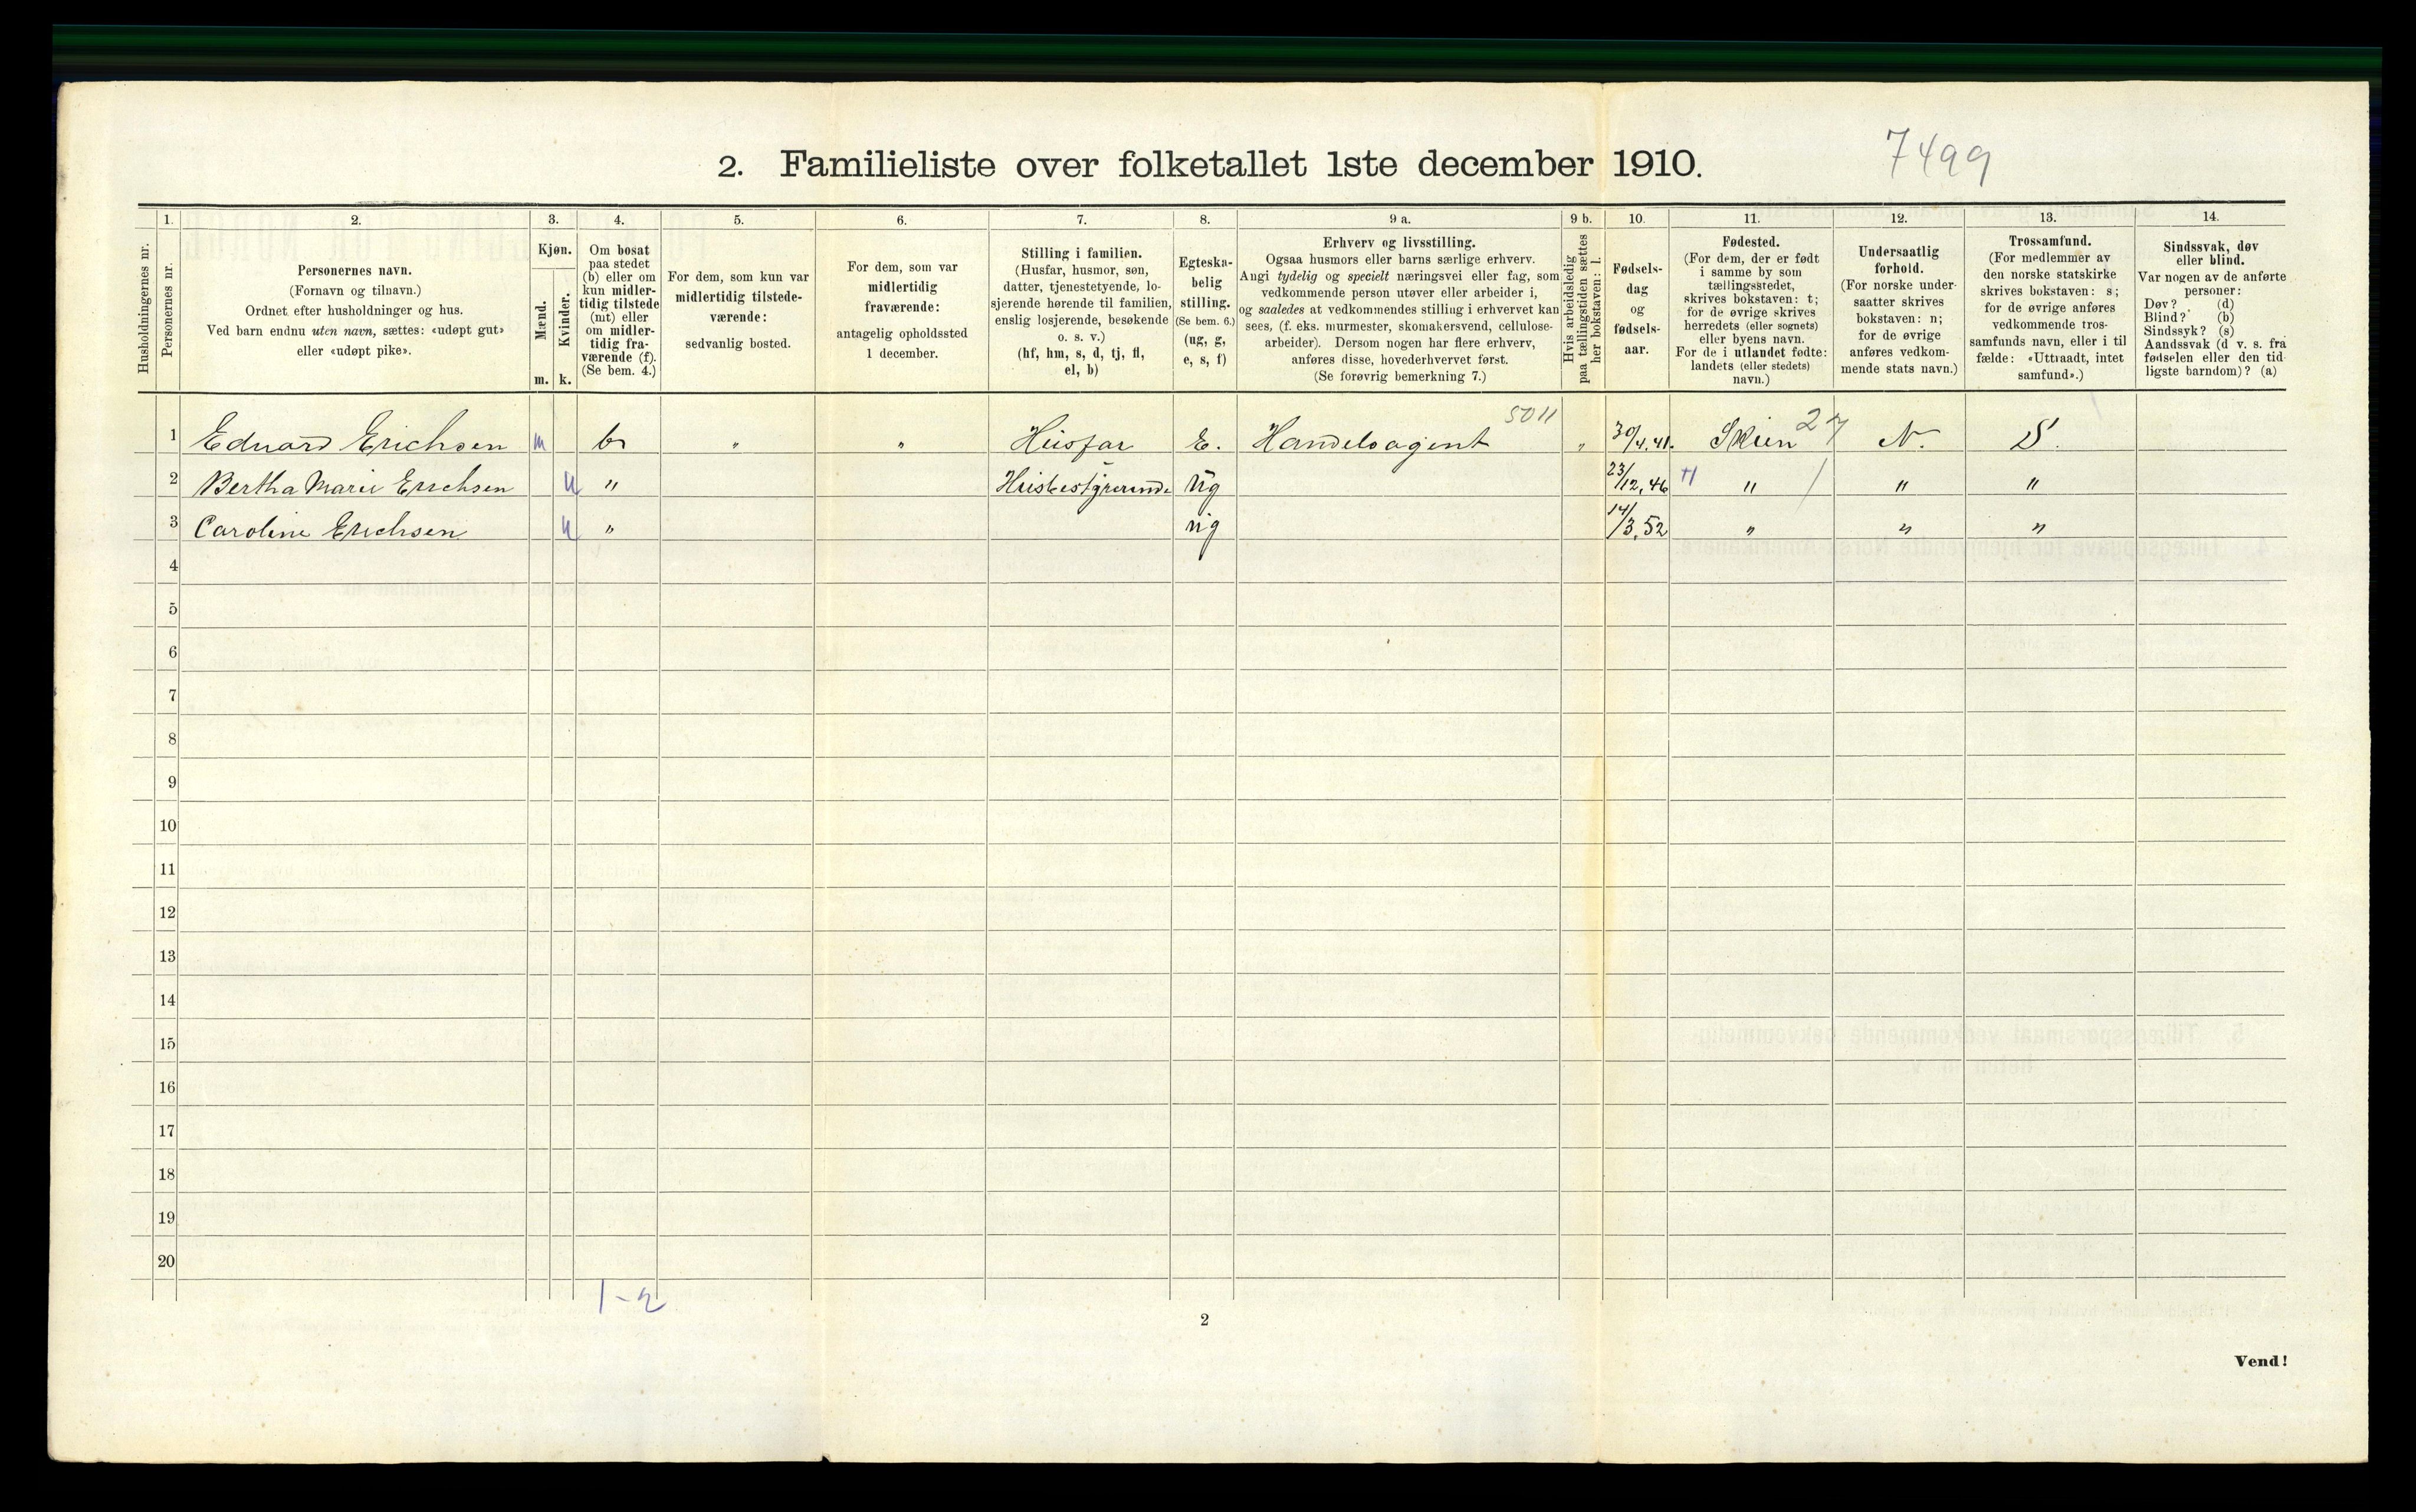 2. Familieliste over folketallet 1ste december 1910.
7499
Husholdningernes nr.
1.
Personernes nr.
2.
Personernes navn.
(Fornavn og tilnavn.)
Ordnet efter husholdninger og hus.
Ved barn endnu uten navn, sættes: «udøpt gut»
eller «udøpt pike».
3.
Kjøn.
Mænd.
Kvinder.
m. k.
4.
Om bosat
paa stedet
(b) eller om
kun midler-
tidig tilstede
(mt) eller
om midler-
tidig fra-
værende (f).
(Se bem. 4.)
5.
For dem, som kun var
midlertidig tilstede-
værende:
sedvanlig bosted.
6.
For dem, som var
midlertidig
fraværende:
antagelig opholdssted
1 december.
7.
Stilling i familien.
(Husfar, husmor, søn,
datter, tjenestetyende, lo-
sjerende hørende til familien,
enslig losjerende, besøkende
o. s. v.)
(hf, hm, s, d, tj, fl,
el, b)
8.
Egteska-
belig
stilling.
(Se bem. 6.)
(ug, g,
e, s, f)
9 a.
Erhverv og livsstilling.
Ogsaa husmors eller barns særlige erhverv.
Angi tydelig og specielt næringsvei eller fag, som
vedkommende person utøver eller arbeider i,
og saaledes at vedkommendes stilling i erhvervet kan
sees, (f. eks. murmester, skomakersvend, cellulose-
arbeider). Dersom nogen har flere erhverv,
anføres disse, hovederhvervet først.
(Se forøvrig bemerkning 7.)
9 b.
Hvis arbeidsledig
paa tællingstiden sættes
her bokstaven: l.
10.
Fødsels-
dag
og
fødsels-
aar.
11.
Fødested.
(For dem, der er født
i samme by som
tællingsstedet,
skrives bokstaven: t;
for de øvrige skrives
herredets (eller sognets)
eller byens navn.
For de i utlandet fødte:
landets (eller stedets)
navn.)
12.
Undersaatlig
forhold.
(For norske under-
saatter skrives
bokstaven: n;
for de øvrige
anføres vedkom-
mende stats navn.)
13.
Trossamfund.
(For medlemmer av
den norske statskirke
skrives bokstaven: s;
for de øvrige anføres
vedkommende tros-
samfunds navn, eller i til
fælde: «Uttraadt, intet
samfund».)
14.
Sindssvak, døv
eller blind.
Var nogen av de anførte
personer:
Døv? (d)
Blind? (b)
Sindssyk? (s)
Aandssvak (d. v. s. fra
fødselen eller den tid-
ligste barndom)? (a)
1 Eduard Erichsen m b " " Husfar E. Handelsagent 5011 " 30/4.41. Skien 27 N. S.
2 Bertha Marie Erichsen k " Husbestyrerinde ug 23/12.46 " " "
3 Caroline Erichsen k " ug 14/3.52 " " "
4
5
6
7
8
9
10
11
12
13
14
15
16
17
18
19
20
1-2
2
Vend!